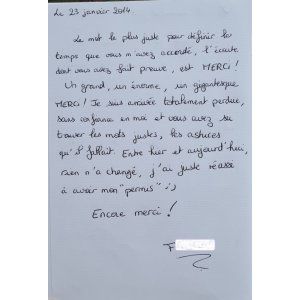 Le 23 janvier 2014
Le mot le plus juste pour définir le
temps que vous m'avez accordé, l'écoute
dont vous avez fait preuve, est MERCI !
Un grand, un énorme, un gigantesque
MERCI ! Je suis arrivée totalement perdue,
sans confiance en moi et vous avez su
trouver les mots justes, les astuces
qu'il fallait. Entre hier et aujourd'hui,
rien n'a changé, j'ai juste réussi
à avoir mon "permis" :)
Encore merci !
F